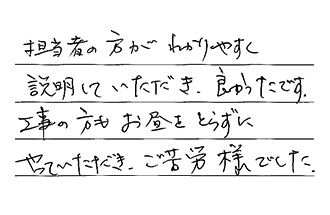 担当者の方が わかりやすく
説明して いただき、良かったです。
工事の方も お昼を とらずに
やっていただき、ご苦労様でした。